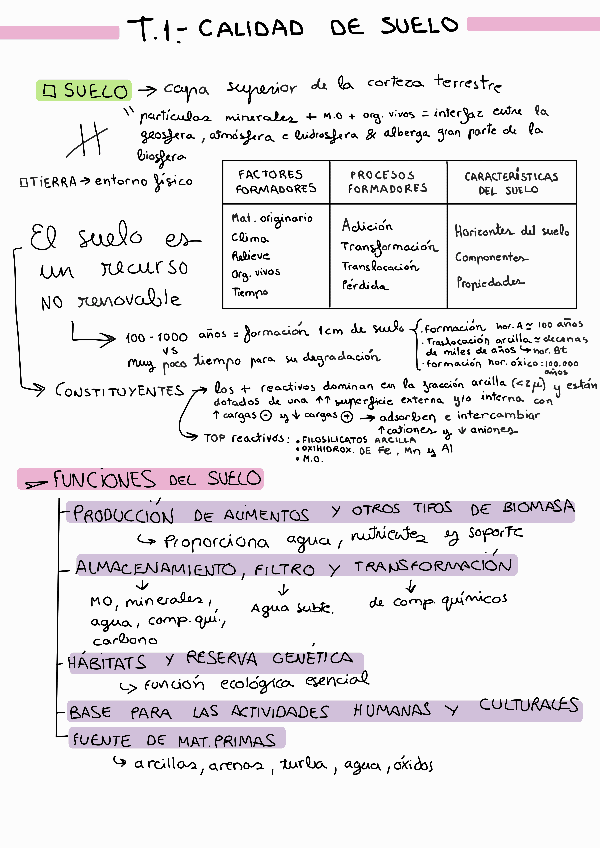 T.1.- CALIDAD DE SUELO
SUELO → capa superior de la corteza terrestre
" partículas minerales + M.O + org. vivos = interfaz entre la
geosfera, atmósfera e hidrosfera & alberga gran parte de la
biosfera
TIERRA → entorno físico
FACTORES FORMADORES
Mat. originario
Clima
Relieve
Org. vivos
Tiempo
PROCESOS FORMADORES
Adición
Transformación
Translocación
Pérdida
CARACTERÍSTICAS DEL SUELO
Horizontes del suelo
Componentes
Propiedades
El suelo es
un recurso
NO renovable
100-1000 años = formación 1cm de suelo
vs
muy poco tiempo para su degradación
· Formación hor. A ≈ 100 años
· Traslocación arcilla ≈ decenas
de miles de años → hor. Bt
· Formación hor. óxico: 100.000
años
CONSTITUYENTES → los + reactivos dominan en la fracción arcilla (<2μ) y están
dotados de una ↑↑ superficie externa y/o interna con
↑ cargas ⊖ y ↓ cargas ⊕ → adsorben e intercambiar
↑ cationes y ↓ aniones
TOP reactivos: • FILOSILICATOS ARCILLA
• OXIHIDROX. DE Fe, Mn y Al
• M.O.
FUNCIONES DEL SUELO
PRODUCCIÓN DE ALIMENTOS Y OTROS TIPOS DE BIOMASA
↳ Proporciona agua, nutrientes y soporte
ALMACENAMIENTO, FILTRO Y TRANSFORMACIÓN
MO, minerales,
agua, comp. quí.,
carbono
Agua subt.
de comp. químicos
HÁBITATS Y RESERVA GENÉTICA
↳ función ecológica esencial
BASE PARA LAS ACTIVIDADES HUMANAS Y CULTURALES
FUENTE DE MAT. PRIMAS
↳ arcillas, arenas, turba, agua, óxidos